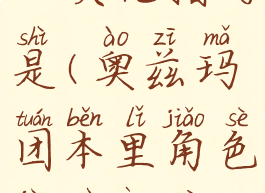 shì ào zī mǎ
是(奥兹玛
tuán běn lǐ jiǎo sè
团本里角色